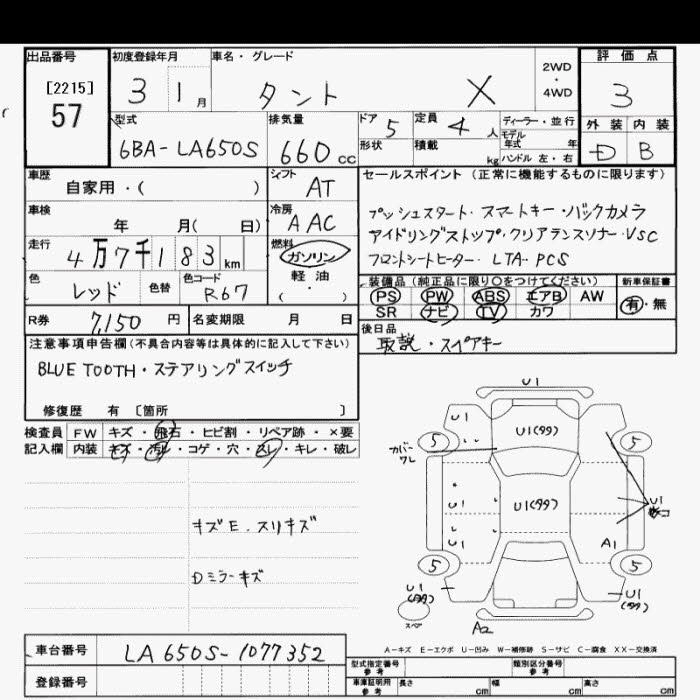 出品番号 初度登録年月 車名・グレード 2WD・4WD 評価点
[2215]
57
3 1月 タント X 3
型式 排気量 ドア 5 定員 4人 ディーラー・並行 外装 内装
6BA-LA650S 660cc 形状 積載 kg モデル年式 年 D B
ハンドル 左・右
車歴 シフト セールスポイント(正常に機能するものに限ります)
自家用・( ) AT
車検 冷房 プッシュスタート・スマートキー・バックカメラ
年 月( 日) AAC アイドリングストップ・クリアランスソナー・VSC
走行 燃料 フロントシートヒーター・LTA・PCS
4万7千183km ガソリン
軽油
・( )
色 色替 色コード 装備品(純正品に限り〇をつけてください) 新車保証書
レッド R67 PS PW ABS エアB AW 有・無
SR ナビ TV カワ
R券 7,150円 名変期限 月 日 後日品
取説・スペアキー
注意事項申告欄(不具合内容等は具体的に記入して下さい)
BLUETOOTH・ステアリングスイッチ
修復歴 有 〔箇所 〕
検査員 FW キズ・飛石・ヒビ割・リペア跡・×要
記入欄 内装 キズ・汚レ・コゲ・穴・スレ・キレ・破レ
キズE.スリキズ
Dミラーキズ
U1
U1 U1(タタ)
5 5
カバーワレ
U1 U1(タタ) U1
U1 A1
5 5
U1(タタ) U1(タタ)
スペア
A2
A-キズ E-エクボ U-凹み W-補修跡 S-サビ C-腐食 XX-交換済
車台番号 LA650S-1077352
登録番号
型式指定番号 参考 類別区分番号 参考
車庫証明用 参考 長さ cm 幅 cm 高さ cm